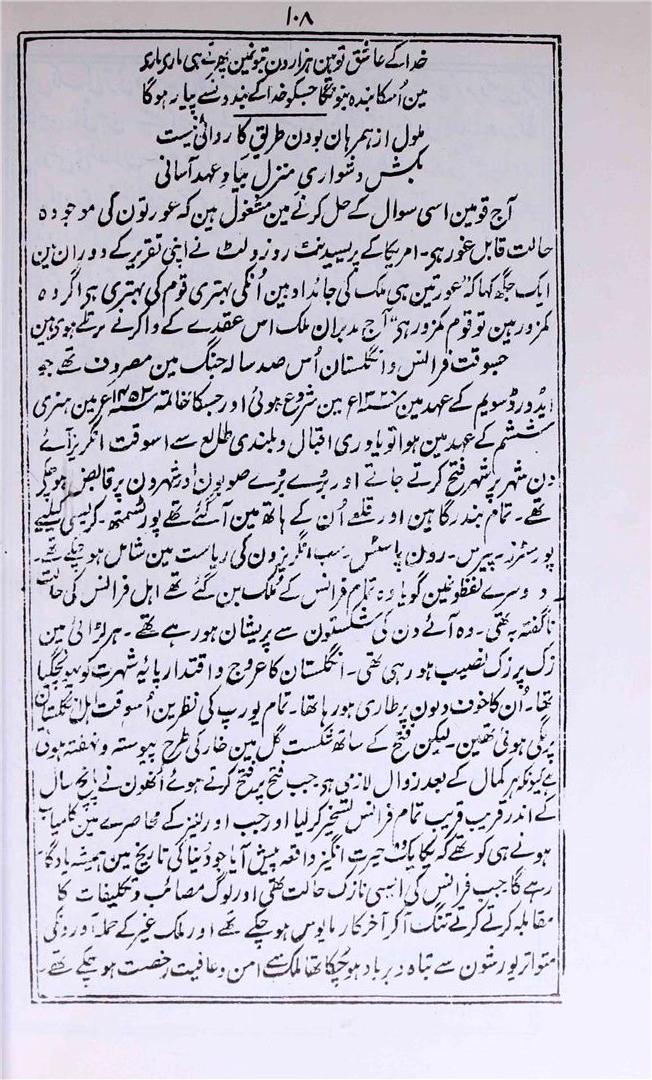 ۱۰۸
خدا کے عاشق تو ہین ہزارون بنونمین پھرتے ہی ماری ماری
مین اُسکا بندہ بنونگا جسکو خدا کے بندونسے پیار ہوگا
ملول از ہمرہان بودن طریق کاردانی نیست
بکش دشواری منزل بیاد عہد آسانی
آج قومین اسی سوال کے حل کرنے مین مشغول ہین کہ عورتون کی موجودہ
حالت قابل غور ہی۔ امریکا کے پریسیڈنٹ روزولٹ نے اپنی تقریر کے دوران مین
ایک جگھ کہا کہ "عورتین ہی ملک کی جائداد ہین اُنکی بہتری قوم کی بہتری ہی اگر وہ
کمزور ہین تو قوم کمزور ہی" آج مدبران ملک اس عقدے کے واکرنے پر تلے ہوی ہین
جسوقت فرانس و انگلستان اُس صد سالہ جنگ مین مصروف تھے جو
ایڈورڈ سویم کے عہد مین سنہ ع مین شروع ہوئی اور جسکا خاتمہ سنہ ۱۴۵۳ع مین ہنری
ششم کے عہد مین ہوا تو یاوری اقبال و بلندی طالع سے اسوقت انگریز آئے
دن شہر پر شہر فتح کرتے جاتے اور بڑے بڑے صوبون اور شہرون پر قابض ہو چکے
تھے۔ تمام بندرگاہین اور قلعے اُن کے ہاتھ مین آگئے تھے پورٹسمتھ۔ کریسی
پوئٹرز۔ پیرس۔ سب انگریزون کی ریاست مین شامل ہو چکے تھے۔
دوسرے لفظونمین گویا وہ تمام فرانس کے مُلک بن گئے تھے اہل فرانس کی حالت
ناگفتہ بہ تھی۔ وہ آئے دن کی شکستون سے پریشان ہو رہے تھے۔ ہر لڑائی مین
زک پر زک نصیب ہو رہی تھی۔ انگلستان کا عروج و اقتدار پایۂ شہرت کو پہونچگیا
تھا۔ اُن کا خوف دلون پر طاری ہو رہا تھا۔ تمام یورپ کی نظرین اُسوقت اہل انگلستان
پر لگی ہوئی تھین۔ لیکن فتح کے ساتھ شکست گل مین خار کی طرح پیوستہ و نہفتہ ہوتی
ہے کیونکہ ہر کمال کے بعد زوال لازمی ہو جب فتح پر فتح کرتے ہوئے اُنھون نے پانچ سال
کے اندر قریب قریب تمام فرانس تسخیر کر لیا اور جب اورلینز کے محاصرے مین کامیاب
ہونے ہی کو تھے کہ یکایک وہ حیرت انگیز واقعہ پیش آیا جو دُنیا کی تاریخ مین ہمیشہ یادگار
رہے گا جب فرانس کی ایسی نازک حالت تھی اور لوگ مصائب و تکلیفات کا
مقابلہ کرتے کرتے تنگ آکر آخر کار مایوس ہو چکے تھے اور ملک غیر کے حملہ آورونکی
متواتر یورشون سے تباہ و برباد ہو چکا تھا ملک سے امن و عافیت رخصت ہو چکے تھے۔